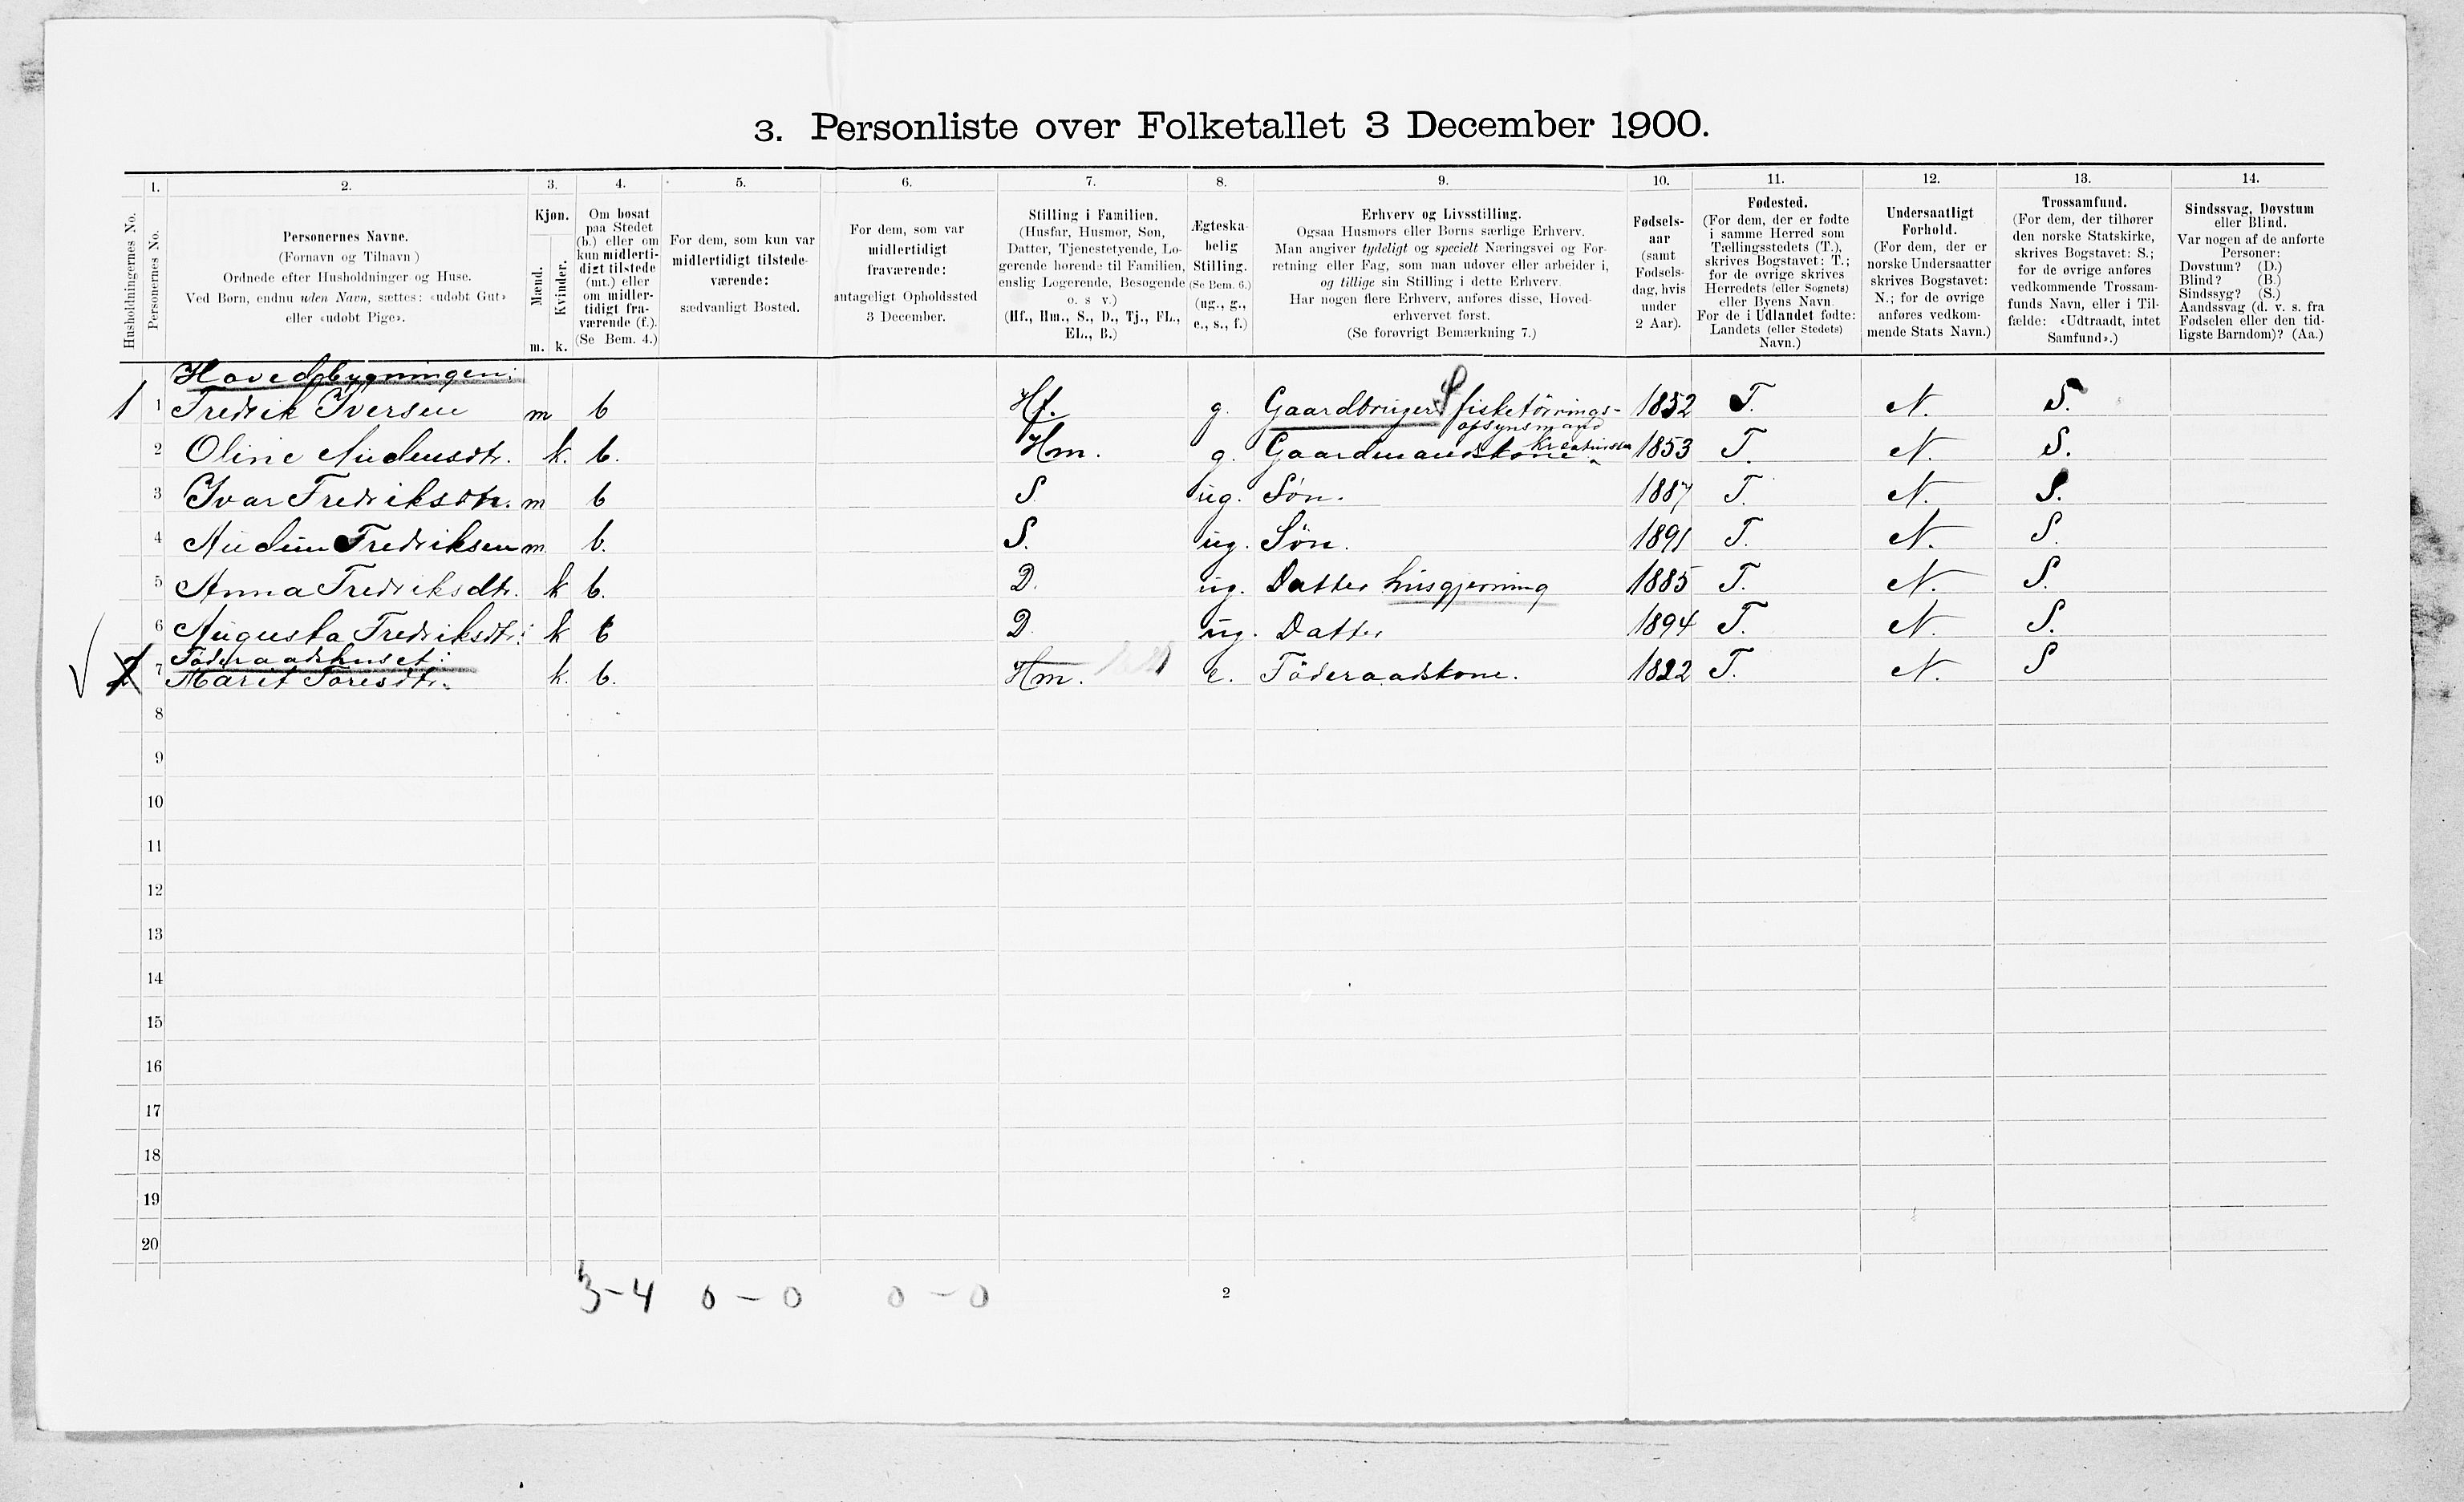 3. Personliste over Folketallet 3 December 1900.
1. 2. 3. 4. 5. 6. 7. 8. 9. 10. 11. 12. 13. 14.
Husholdningernes No.
Personernes No.
Personernes Navne.
(Fornavn og Tilnavn)
Ordnede efter Husholdninger og Huse.
Ved Børn, endnu uden Navn, sættes: «udøbt Gut»
eller «udøbt Pige».
Kjøn.
Mænd.
Kvinder.
m. k.
Om bosat
paa Stedet
(b.) eller om
kun midlerti-
digt tilstede
(mt.) eller
om midler-
tidigt fra-
værende (f.).
(Se Bem. 4.)
For dem, som kun var
midlertidigt tilstede-
værende:
sædvanligt Bosted.
For dem, som var
midlertidigt
fraværende:
antageligt Opholdssted
3 December.
Stilling i Familien.
(Husfar, Husmor, Søn,
Datter, Tjenestetyende, Lo-
gerende hørende til Familien,
enslig Logerende, Besøgende
o. s v.)
(Hf., Hm., S., D., Tj., FL.,
EL., B.)
Ægteska-
belig
Stilling.
(Se Bem. 6.)
(ug., g.,
e., s., f.)
Erhverv og Livsstilling.
Ogsaa Husmors eller Børns særlige Erhverv.
Man angiver tydeligt og specielt Næringsvei og For-
retning eller Fag, som man udøver eller arbeider i,
og tillige sin Stilling i dette Erhverv.
Har nogen flere Erhverv, anføres disse, Hoved-
erhvervet først.
(Se forøvrigt Bemærkning 7.)
Fødsels-
aar
(samt
Fødsels-
dag, hvis
under
2 Aar).
Fødested.
(For dem, der er fødte
i samme Herred som
Tællingsstedets (T.),
skrives Bogstavet: T.;
for de øvrige skrives
Herredets (eller Sognets)
eller Byens Navn.
For de i Udlandet fødte:
Landets (eller Stedets)
Navn.)
Undersaatligt
Forhold.
(For dem, der er
norske Undersaatter
skrives Bogstavet:
N.; for de øvrige
anføres vedkom-
mende Stats Navn.)
Trossamfund.
(For dem, der tilhører
den norske Statskirke,
skrives Bogstavet: S.;
for de øvrige anføres
vedkommende Trossam-
funds Navn, eller i Til-
fælde: «Udtraadt, intet
Samfund».)
Sindssvag, Døvstum
eller Blind.
Var nogen af de anførte
Personer:
Døvstum? (D.)
Blind? (B.)
Sindssyg? (S.)
Aandssvag (d. v. s. fra
Fødselen eller den tid-
ligste Barndom)? (Aa.)
Hovedbygningen:
1 1 Fredrik Iversen m b Hf. g. Gaardbruger fisketörrings- 1852 T. N. S.
opsynsmand
2 Oline Audunsdtr. k. b. Hm. g. Gaardmandskone 1853 T. N. S.
3 Ivar Fredriksen. m b S ug. Sön. 1887 T. N. S.
4 Audun Fredriksen m. b. S. ug. Sön. 1891 T. N. S.
5 Anna Fredriksdtr. k b. D. ug. Datter husgjerning 1885 T. N. S.
6 Augusta Fredriksdtr. k b D ug. Datter 1894 T. N. S.
Föderaadshuset:
2 7 Marit Toresdtr. k. b. Hm. e. Föderaadskone. 1822 T. N. S
8
9
10
11
12
13
14
15
16
17
18
19
20
3-4 0-0 0-0
2